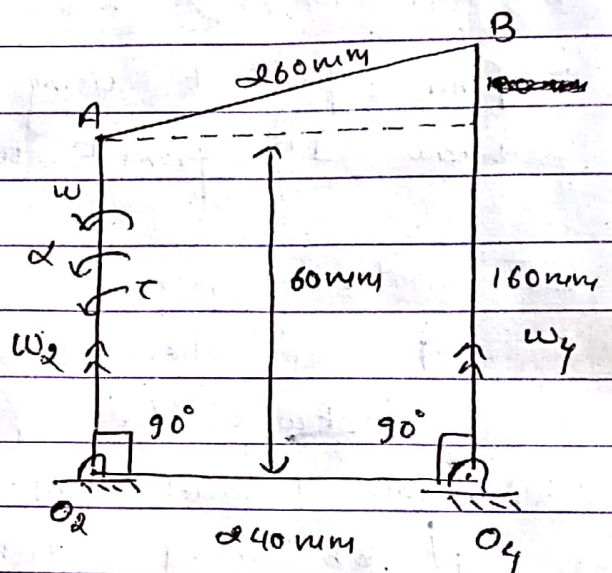 B
260mm
A
ω
α
τ
60mm
160mm
ω2
ω4
90°
90°
O2
240mm
O4